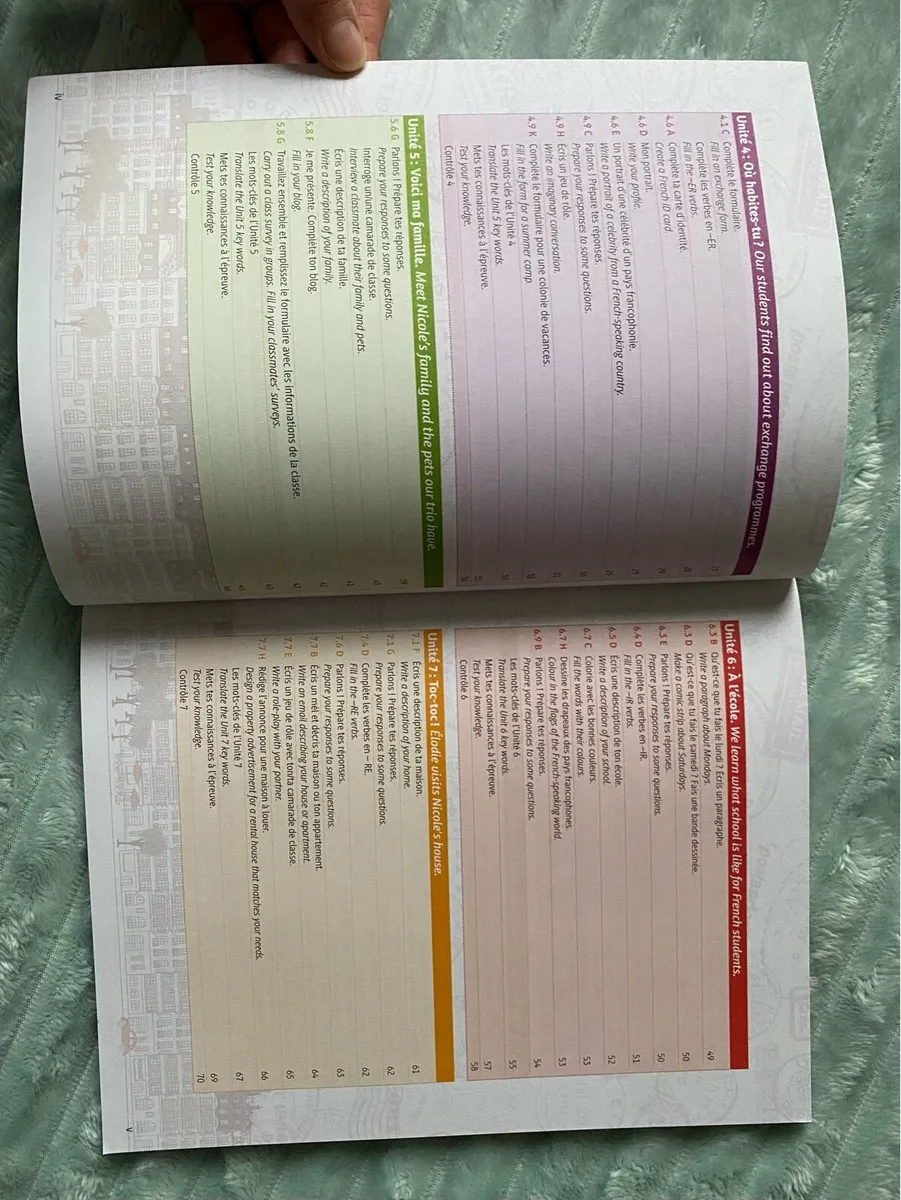 Unité 4 : Où habites-tu ? Our students find out about exchange programmes.
4.1 C Complète le formulaire.
Fill in an exchange form.
Complète les verbes en –ER.
Fill in the –ER verbs.
4.6 A Complète ta carte d'identité.
Create a French ID card.
4.6 D Mon portrait.
Write your profile.
4.6 E Un portrait d'une célébrité d'un pays francophonie.
Write a portrait of a celebrity from a French-speaking country.
4.9 C Parlons ! Prépare tes réponses.
Prepare your responses to some questions.
4.9 H Écris un jeu de rôle.
Write an imaginary conversation.
4.9 K Complète le formulaire pour une colonie de vacances.
Fill in the form for a summer camp.
Les mots-clés de l'Unité 4
Translate the Unit 5 key words.
Mets tes connaissances à l'épreuve.
Test your knowledge.
Contrôle 4
Unité 5 : Voici ma famille. Meet Nicole's family and the pets our trio have.
5.6 G Parlons ! Prépare tes réponses.
Prepare your responses to some questions.
Interroge un/une camarade de classe.
Interview a classmate about their family and pets.
Écris une description de ta famille.
Write a description of your family.
5.8 F Je me présente. Complète ton blog.
Fill in your blog.
5.8 G Travaillez ensemble et remplissez le formulaire avec les informations de la classe.
Carry out a class survey in groups. Fill in your classmates' surveys.
Les mots-clés de l'Unité 5
Translate the Unit 5 key words.
Mets tes connaissances à l'épreuve.
Test your knowledge.
Contrôle 5
iv
Unité 6 : À l'école. We learn what school is like for French students.
6.3 B Qu'est-ce que tu fais le lundi ? Écris un paragraphe.
Write a paragraph about Mondays. 49
6.3 D Qu'est-ce que tu fais le samedi ? Fais une bande dessinée.
Make a comic strip about Saturdays. 50
6.3 E Parlons ! Prépare tes réponses.
Prepare your responses to some questions. 50
6.4 D Complète les verbes en –IR.
Fill in the –IR verbs. 51
6.5 D Écris une description de ton école.
Write a description of your school. 52
6.7 C Colorie avec les bonnes couleurs.
Fill the words with their colours. 53
6.7 H Dessine les drapeux des pays francophones.
Colour in the flags of the French-speaking world. 53
6.9 B Parlons ! Prépare tes réponses.
Prepare your responses to some questions. 54
Les mots-clés de l'Unité 6
Translate the Unit 6 key words. 55
Mets tes connaissances à l'épreuve.
Test your knowledge. 57
Contrôle 6 58
Unité 7 : Toc-toc ! Élodie visits Nicole's house.
7.1 F Écris une description de ta maison.
Write a description of your home. 61
7.1 G Parlons ! Prépare tes réponses.
Prepare your responses to some questions. 62
7.4 D Complète les verbes en – RE.
Fill in the –RE verbs. 62
7.6 D Parlons ! Prépare tes réponses.
Prepare your responses to some questions. 63
7.7 B Écris un mél et décris ta maison ou ton appartement.
Write an email describing your house or apartment. 64
7.7 E Écris un jeu de rôle avec ton/ta camarade de classe.
Write a role-play with your partner. 65
7.7 H Rédige l'annonce pour une maison à louer.
Design a property advertisement for a rental house that matches your needs. 66
Les mots-clés de l'Unité 7
Translate the Unit 7 key words. 67
Mets tes connaissances à l'épreuve.
Test your knowledge. 69
Contrôle 7 70
v